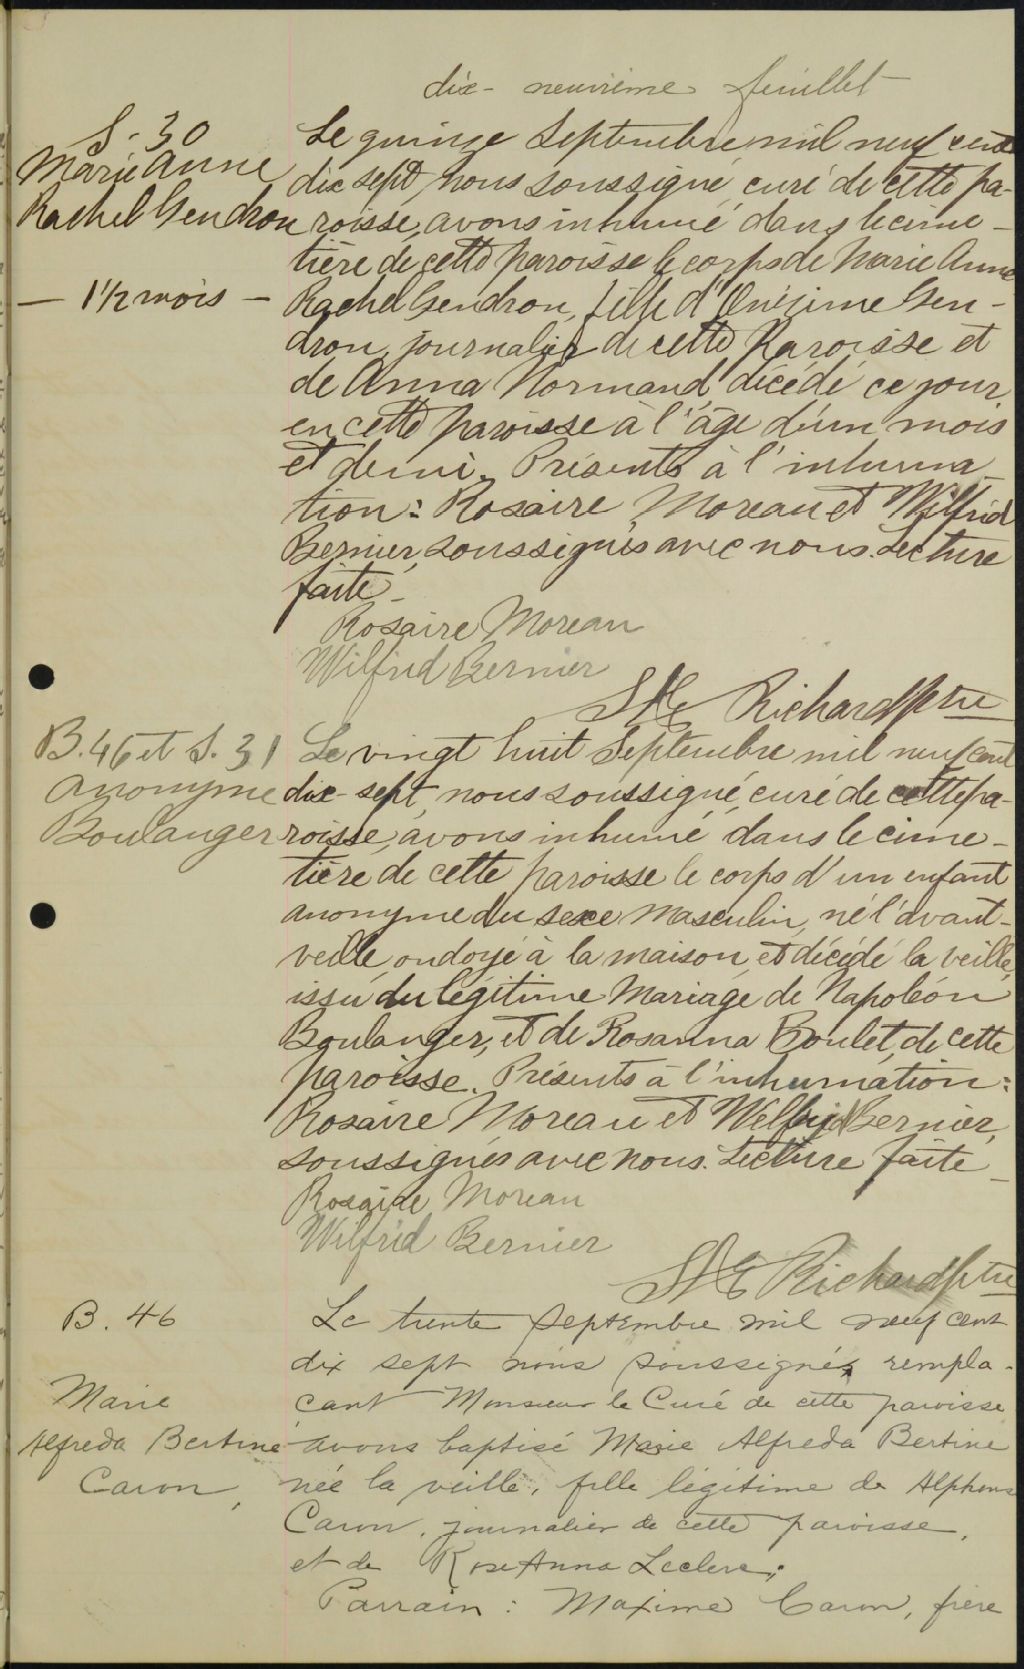 dix-neuvième feuillet
S-30
Marie Anne
Rachel Gendron
— 1 1/2 mois —
Le quinze Septembre mil neuf cent
dix sept, nous soussigné curé de cette pa-
roisse, avons inhumé dans le cime-
tière de cette paroisse le corps de Marie Anne
Rachel Gendron, fille d'Onézime Gen-
dron, journalier de cette Paroisse et
de Anna Normand, décédé ce jour
en cette paroisse à l'âge d'un mois
et demi. Présents à l'inhuma-
tion: Rosaire Moreau et Wilfrid
Bernier, soussignés avec nous. Lecture
faite-
Rosaire Moreau
Wilfrid Bernier
Richard Ptre
B.46 et S. 31
Anonyme
Boulanger
Le vingt huit Septembre mil neuf cent
dix-sept, nous soussigné, curé de cette pa-
roisse, avons inhumé dans le cime-
tière de cette paroisse le corps d'un enfant
anonyme du sexe masculin, né l'avant-
veille, ondoyé à la maison, et décédé la veille,
issu du légitime Mariage de Napoléon
Boulanger, et de Rosanna Boulet, de cette
paroisse. Présents à l'inhumation:
Rosaire Moreau et Welfrid Bernier,
soussignés avec nous. Lecture faite-
Rosaire Moreau
Wilfrid Bernier
Richard Ptre
B. 46
Marie
Alfreda Bertine
Caron,
Le trente septembre mil neuf cent
dix sept nous soussigné, rempla-
çant Monsieur le Curé de cette paroisse
avons baptisé Marie Alfreda Bertine
née la veille, fille légitime de Alphonse
Caron, journalier de cette paroisse,
et de RoseAnna Leclerc;
Parrain: Maxime Caron, frère